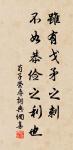 雖有戈矛之刺
不如恭儉之利也
荀子榮辱詞典網集